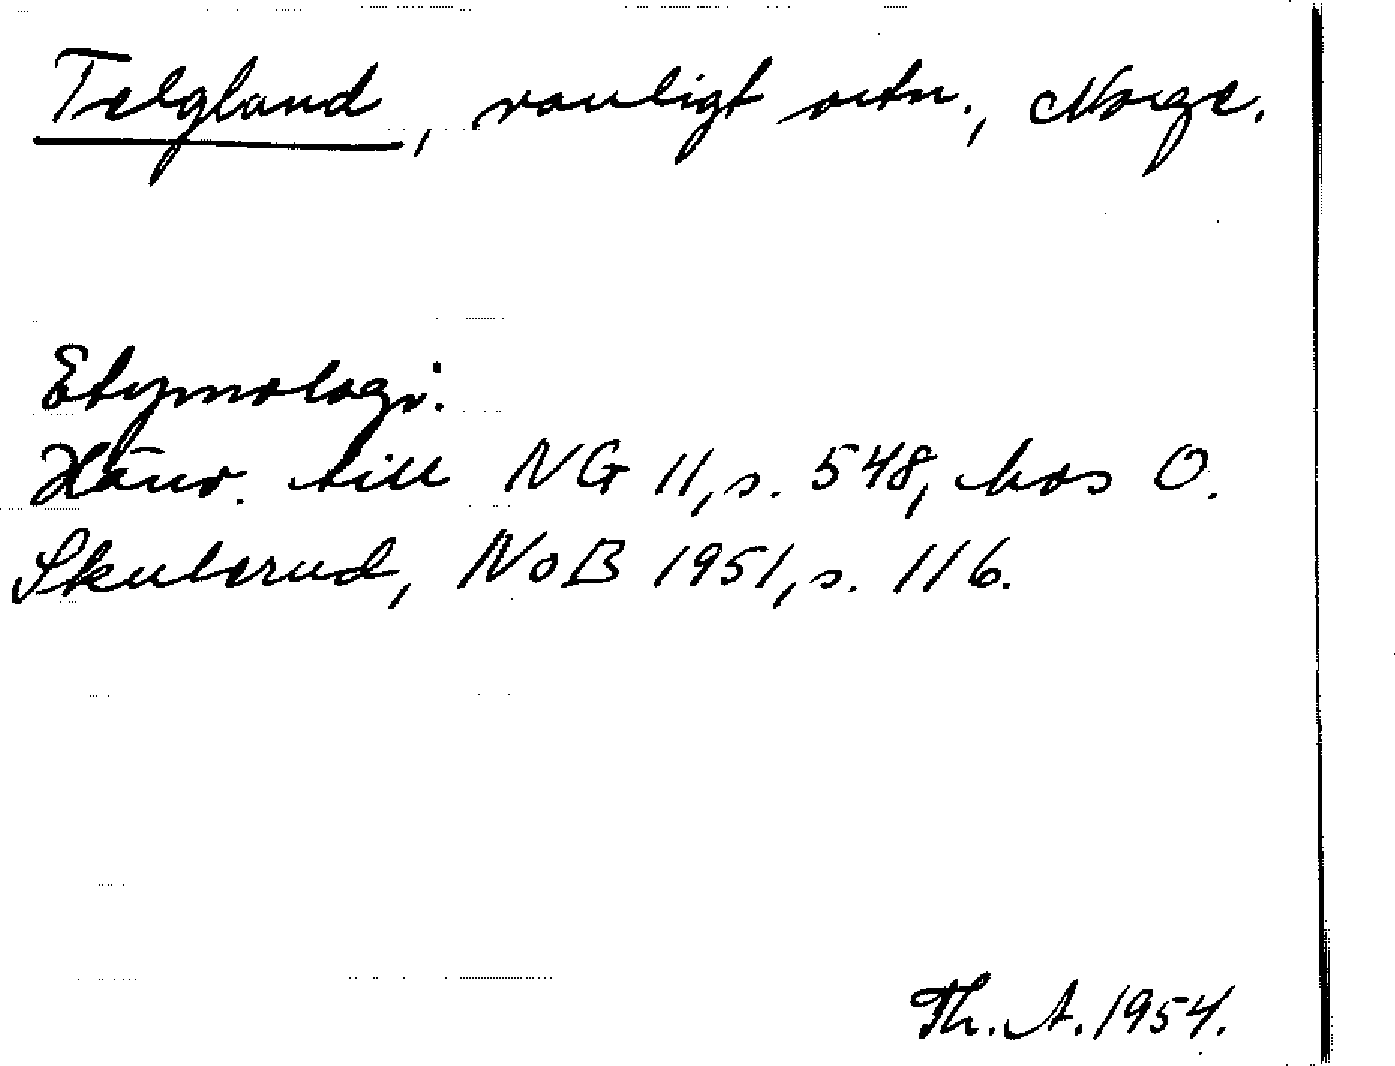 Telgland, vanligt ortn., Norge.
Etymologi:
Hänv. till NG 11, s. 548, hos O.
Skulerud, NoB 1951, s. 116.
Th. A. 1954.